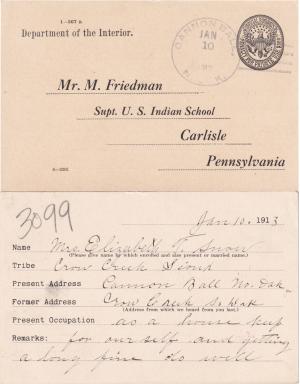 1—567 a
Department of the Interior.
CANNON BALL
JAN
10
Mr. M. Friedman
Supt. U. S. Indian School
Carlisle
Pennsylvania
3099
Jan 10. 1913
Name Mrs. Elizabeth T. Snow
(Please give name by which enrolled and also present or married name.)
Tribe Crow Creek Sioux
Present Address Cannon Ball No. Dak
Former Address Crow Creek S. Dak
(Address from which we heard from you last.)
Present Occupation as a house keep
Remarks: for our self and getting
a long fine do well